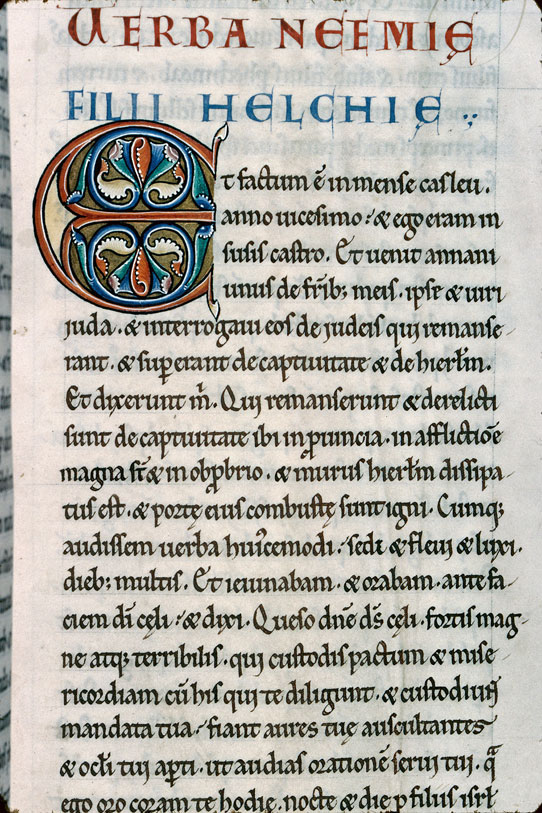 VERBA NEEMIĘ
FILII HELCHIĘ
Et factum ē in mense casleu.
anno uicesimo : & ego eram in
susis castro. Et uenit annani
unus de frīb; meis. ipse & uiri
iuda. & interrogaui eos de iudeis qui remanse-
rant. & suꝑerant de captiuitate & de hierłm.
Et dixerunt m̄. Qui remanserunt & derelicti
sunt de captiuitate ibi in ꝓuincia. in afflictiōe
magna sт̄ & in obꝓbrio. & murus hierłm dissipa-
tus est. & portę eius combustę sunt igni. Cumq;
audissem uerba huiꝰcemodi. sedi & fleui & luxi.
dieb; multis. Et ieiunabam. & orabam. ante fa-
ciem dī cęli : & dixi. Queso dn̄e ds̄ cęli. fortis mag-
ne atq; terribilis. qui custodis pactum & mise-
ricordiam cū his qui te diligunt. & custodiunt
mandata tua. fiant aures tuę auscultantes
& ocłi tui aꝑti. ut audias orationē serui tui. q̄
ego oro coram te hodie. nocte & die ꝓ filiis isrł